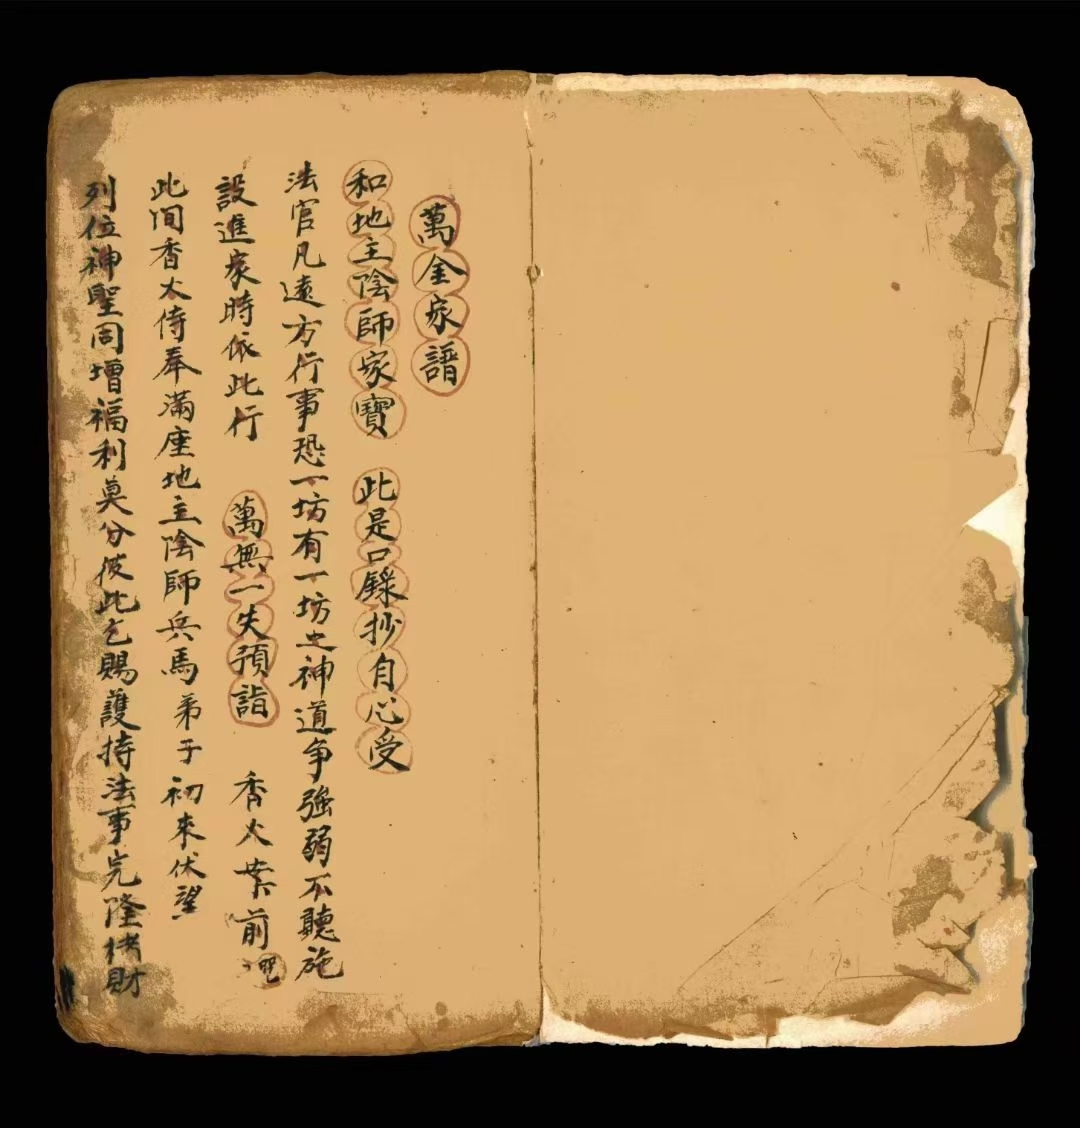 萬金家譜
和地主陰師家寶　此是口錄抄自心受
法官凡遠方行事恐一坊有一坊之神道争強弱不聽施
設進家時依此行　萬無一失預詣　香火案前咒
此间香火侍奉滿座地主陰師兵馬弟子初来伏望
列位神聖同增福利莫分彼此乞賜護持法事完隆財